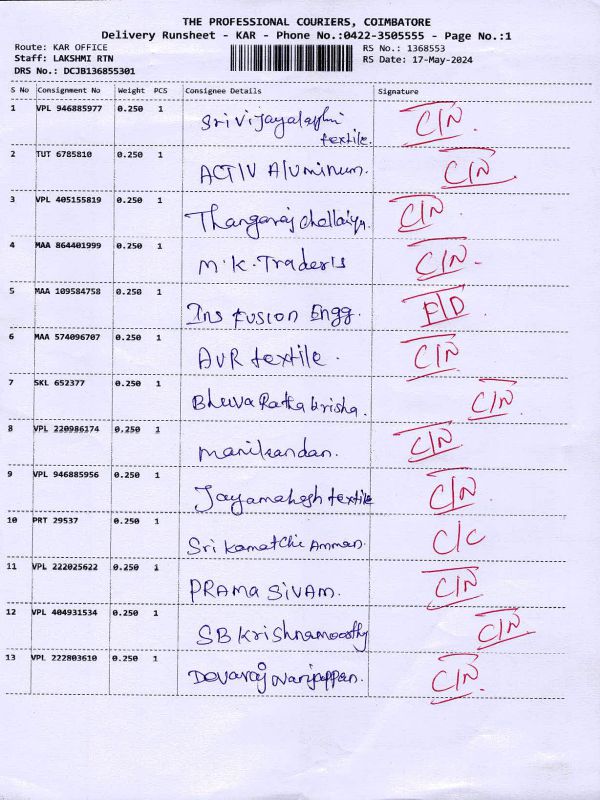 THE PROFESSIONAL COURIERS, COIMBATORE
Delivery Runsheet - KAR - Phone No.:0422-3505555 - Page No.:1
Route: KAR OFFICE RS No.: 1368553
Staff: LAKSHMI RTN RS Date: 17-May-2024
DRS No.: DCJB136855301
S No Consignment No Weight PCS Consignee Details Signature
1 VPL 946885977 0.250 1 Sri Vijayalaxmi C/N
textile.
2 TUT 6785810 0.250 1 ACTIV Aluminum. C/N
3 VPL 405155819 0.250 1 Thangaraj Chellaiya. C/N
4 MAA 864401999 0.250 1 M.K. Traders C/N
5 MAA 109584758 0.250 1 Ins Fusion Engg. F/D
6 MAA 574096707 0.250 1 AVR textile. C/N
7 SKL 652377 0.250 1 Bhuva C/N
8 VPL 220986174 0.250 1 Manikandan. C/N
9 VPL 946885956 0.250 1 Jayamahesh textile C/N
10 PRT 29537 0.250 1 Sri Kamatchi Amman. C/C
11 VPL 222025622 0.250 1 PRAMA SIVAM. C/N
12 VPL 404931534 0.250 1 SB Krishnamoorthy C/N
13 VPL 222803610 0.250 1 Devaraj Nanjappan. C/N